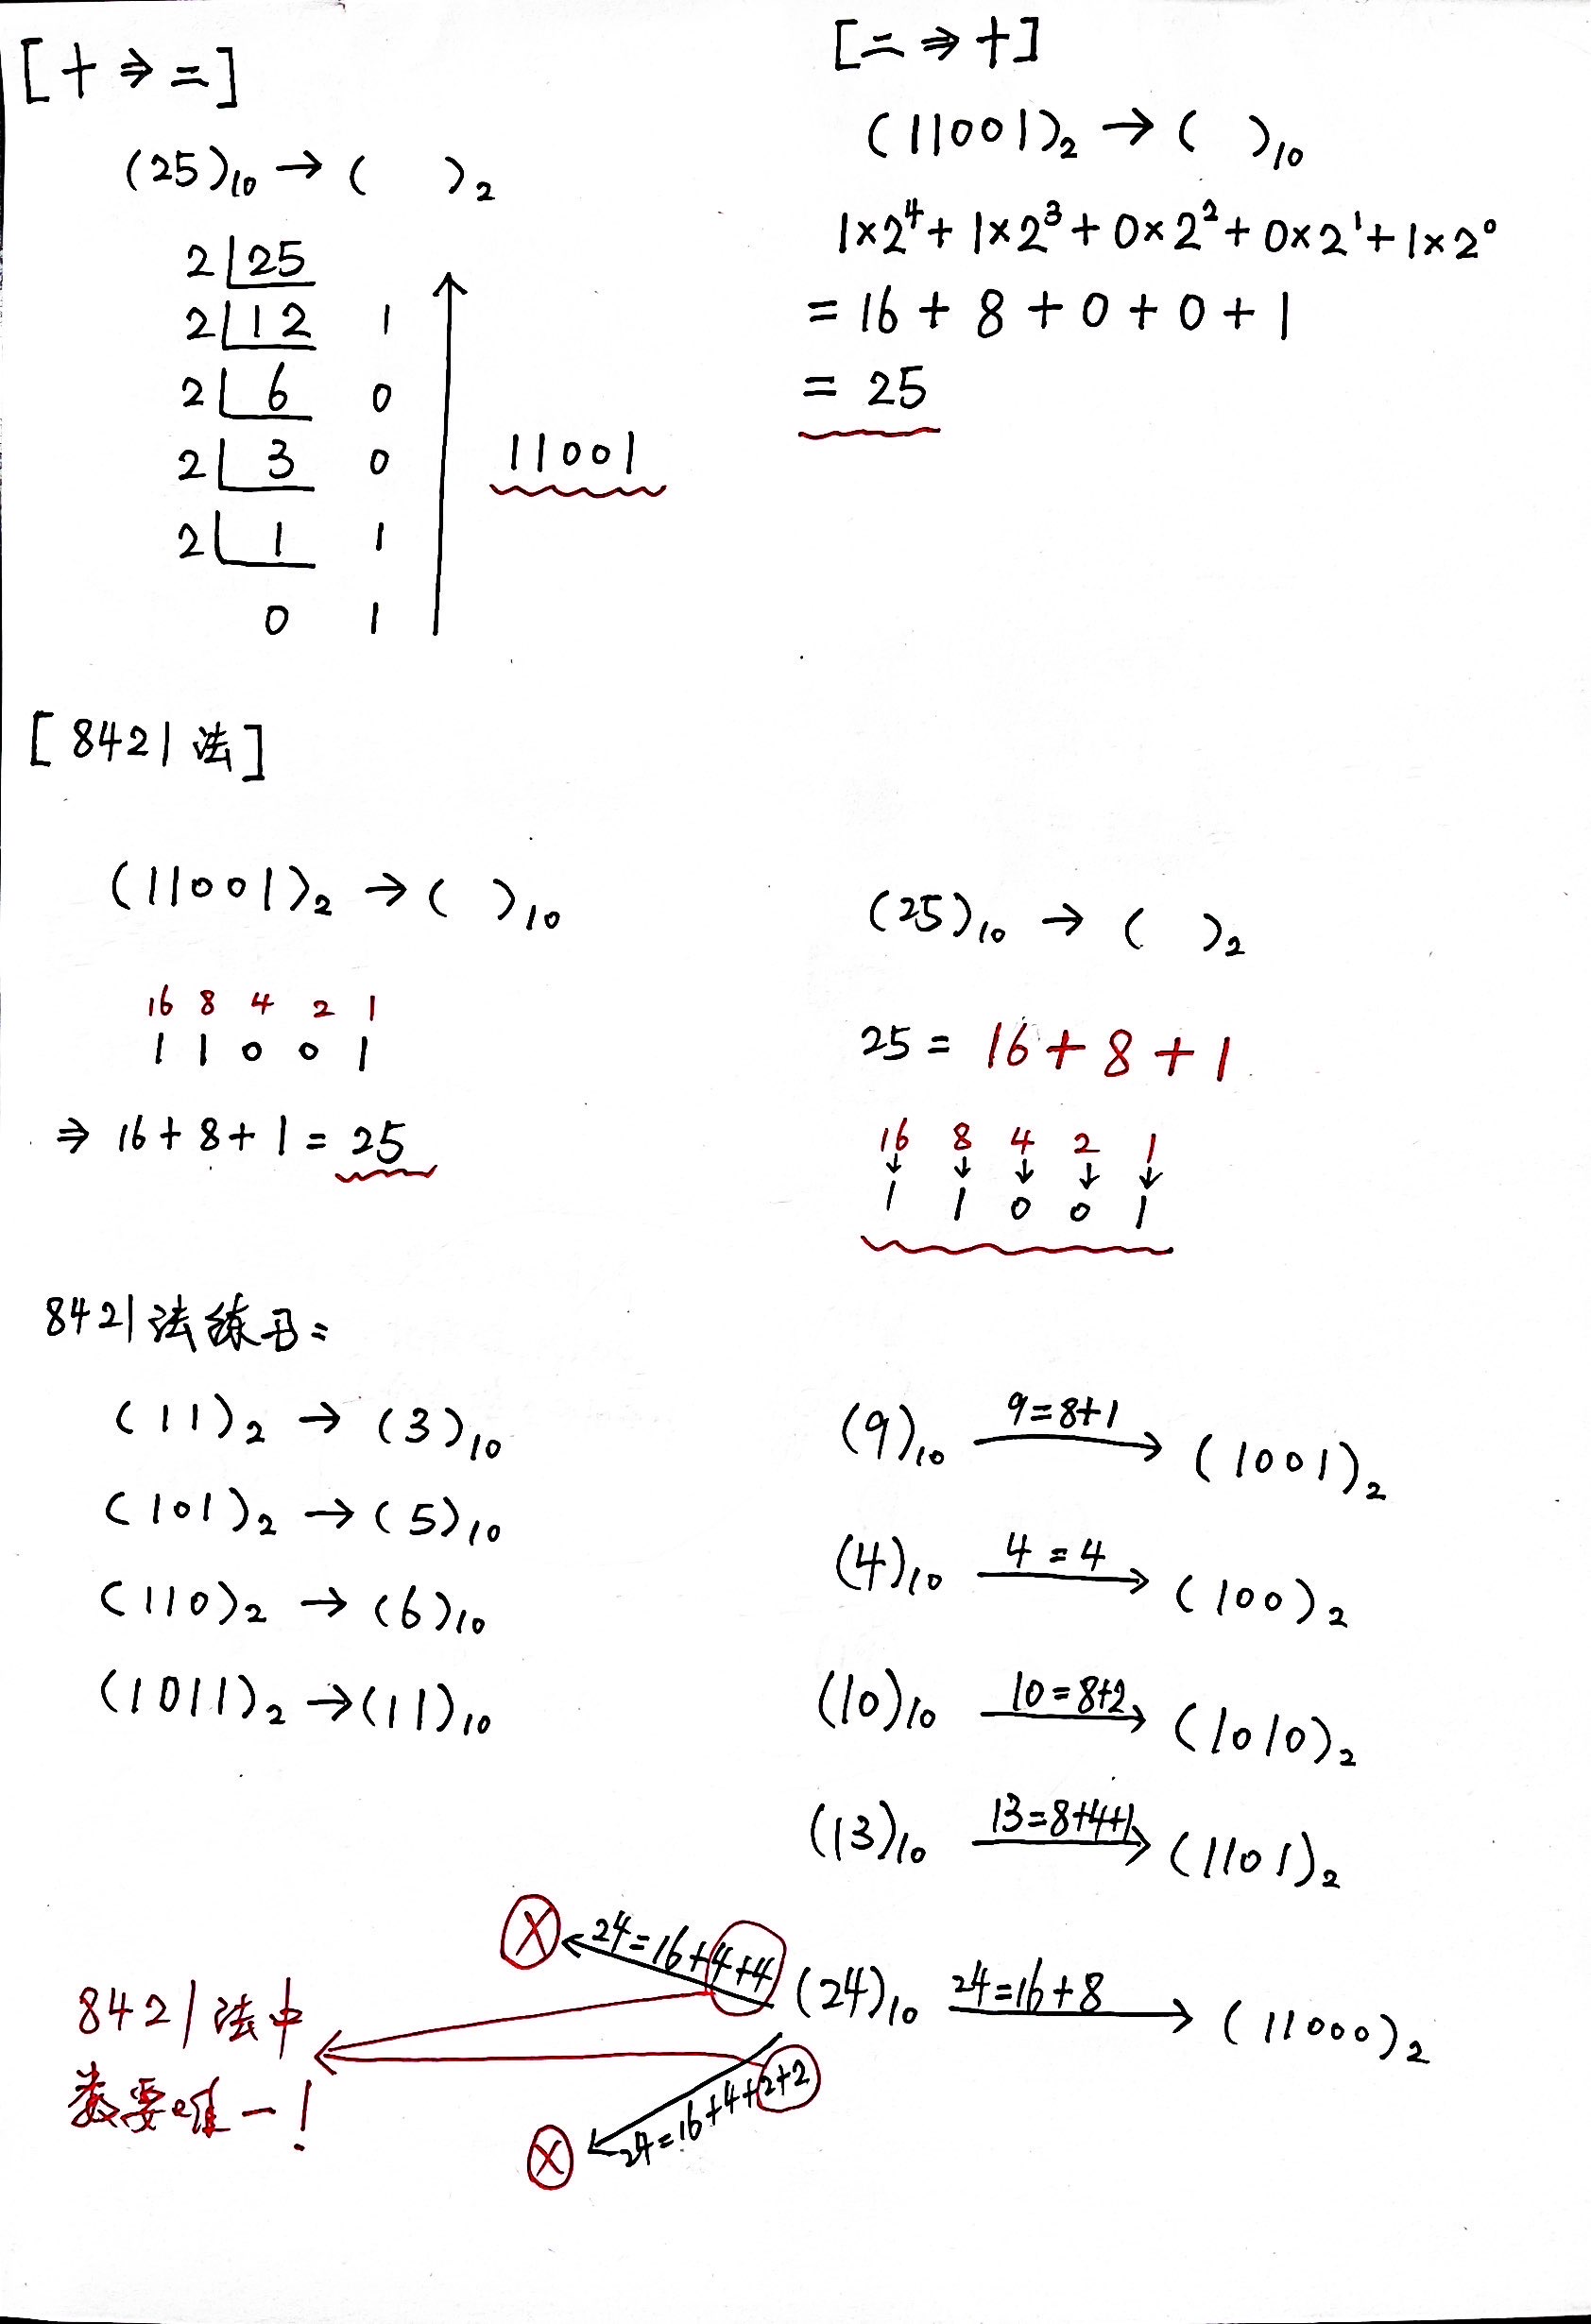 [十⇒二]
(25)₁₀ → ( )₂
2 25
2 12 1
2 6 0
2 3 0
2 1 1
0 1
11001
[二⇒十]
(11001)₂ → ( )₁₀
1×2⁴+1×2³+0×2²+0×2¹+1×2⁰
= 16 + 8 + 0 + 0 + 1
= 25
[8421法]
(11001)₂ → ( )₁₀
16 8 4 2 1
1 1 0 0 1
⇒ 16+8+1=25
(25)₁₀ → ( )₂
25 = 16+8+1
16 8 4 2 1
↓ ↓ ↓ ↓ ↓
1 1 0 0 1
8421法练习:
(11)₂ → (3)₁₀
(101)₂ → (5)₁₀
(110)₂ → (6)₁₀
(1011)₂ → (11)₁₀
(9)₁₀ 9=8+1 → (1001)₂
(4)₁₀ 4=4 → (100)₂
(10)₁₀ 10=8+2 → (1010)₂
(13)₁₀ 13=8+4+1 → (1101)₂
(24)₁₀ 24=16+8 → (11000)₂
X ← 24=16+4+4
X ← 24=16+4+2+2
8421法中
数要唯一!